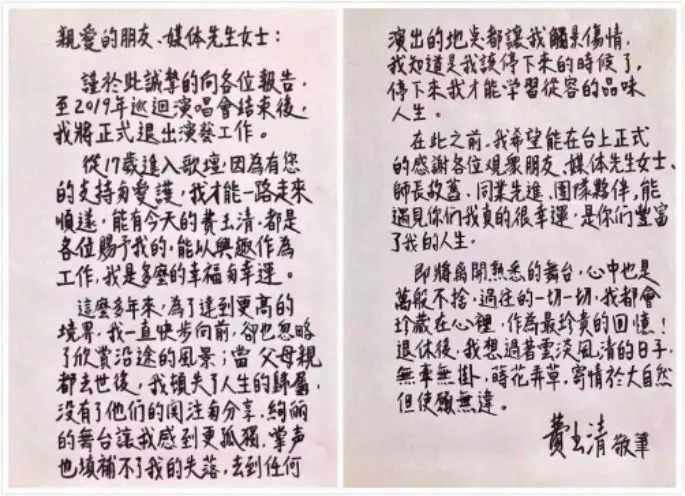 親愛的朋友、媒体先生女士：
謹於此誠摯的向各位報告，
至2019年巡迴演唱會結束後，
我將正式退出演藝工作。
從17歲進入歌壇，因為有您
的支持與愛護，我才能一路走來
順遂，能有今天的費玉清，都是
各位賜予我的，能以興趣作為
工作，我是多麼的幸福與幸運。
這麼多年來，為了達到更高的
境界，我一直快步向前，卻也忽略
了欣賞沿途的風景；當父母親
都去世後，我頓失了人生的歸屬，
沒有了他們的関注與分享，絢麗
的舞台讓我感到更孤獨，掌声
也填補不了我的失落，去到任何
演出的地点都讓我觸景傷情，
我知道是我該停下來的時候了，
停下來我才能学習從容的品味
人生。
在此之前，我希望能在台上正式
的感謝各位观眾朋友、媒体先生女士、
師長故舊、同業先進、團隊夥伴，能
遇見你們我真的很幸運，是你們豐富
了我的人生。
即將离開熟悉的舞台，心中也是
萬般不捨，過往的一切一切，我都會
珍藏在心裡，作為最珍貴的回憶！
退休後，我想過著雲淡風清的日子，
無牽無掛，蒔花弄草，寄情於大自然
但使願無違。
費玉清 敬筆